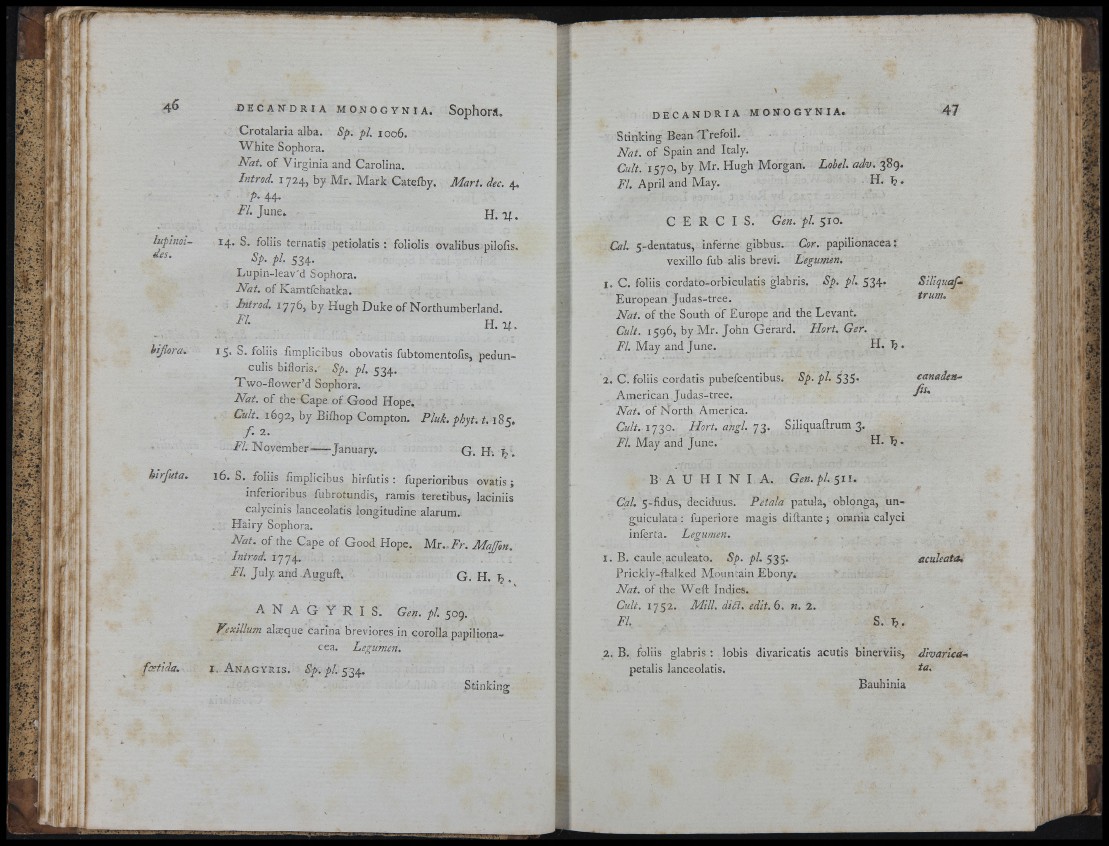 46 DECANDRIA MONOGYNIA. Sophora.
Crotalaria alba. Sp. pl. 1006.
White Sophora.
Nat. of Virginia and Carolina.
Introd. 1724, by Mr. Mark Cateſby. Mart. dec. 4.
p. 44.
Fl. June. H. ♃.
lupinoi-
des.
14. S. foliis ternatis petiolatis : foliolis ovalibus piloſis.
Sp. pl. 534.
Lupin-leav'd Sophora.
Nat. of Kamtſchatka.
Introd. 1776, by Hugh Duke of Northumberland.
Fl. H. ♃.
biflora. 15. S. foliis ſimplicibus obovatis ſubtomentoſis, pedun-
culis bifloris. Sp. pl. 534.
Two-flower'd Sophora.
Nat. of the Cape of Good Hope.
Cult. 1692, by Biſhop Compton. Pluk. phyt. t. 185.
f. 2.
Fl. November——January. G. H. ♄.
hirſuta. 16. S. foliis ſimplicibus hirſutis : ſuperioribus ovatis ;
inferioribus ſubrotundis, ramis teretibus, laciniis
calycinis lanceolatis longitudine alarum.
Hairy Sophora.
Nat. of the Cape of Good Hope. Mr. Fr. Maſſon.
Introd. 1774.
Fl. July and Auguſt. G. H. ♄.
ANAGYRIS. Gen. pl. 509.
Vexillum alæque carina breviores in corolla papiliona-
cea. Legumen.
fœtida. 1. ANAGYRIS. Sp. pl. 534.
Stinking
DECANDRIA MONOGYNIA. 47
Stinking Bean Trefoil.
Nat. of Spain and Italy.
Cult. 1570, by Mr. Hugh Morgan. Lobel. adv. 389.
Fl. April and May. H. ♄.
CERCIS. Gen. pl. 510.
Cal. 5-dentatus, inferne gibbus. Cor. papilionacea :
vexillo ſub alis brevi. Legumen.
1. C. foliis cordato-orbiculatis glabris. Sp. pl. 534. Siliquaſ-
trum.
European Judas-tree.
Nat. of the South of Europe and the Levant.
Cult. 1596, by Mr. John Gerard. Hort. Ger.
Fl. May and June. H. ♄.
2. C. foliis cordatis pubeſcentibus. Sp. pl. 535. canaden-
ſis.
American Judas-tree.
Nat. of North America.
Cult. 1730. Hort. angl. 73. Siliquaſtrum 3.
Fl. May and June. H. ♄.
BAUHINIA. Gen. pl. 511.
Cal. 5-fidus, deciduus. Petala patula, oblonga, un-
guiculata : ſuperiore magis diſtante ; omnia calyci
inſerta. Legumen.
1. B. caule aculeato. Sp. pl. 535. aculeata.
Prickly-ſtalked Mountain Ebony.
Nat. of the Weſt Indies.
Cult. 1752. Mill. dict. edit. 6. n. 2.
Fl. S. ♄.
2. B. foliis glabris : lobis divaricatis acutis binerviis, divarica-
ta.
petalis lanceolatis.
Bauhinia